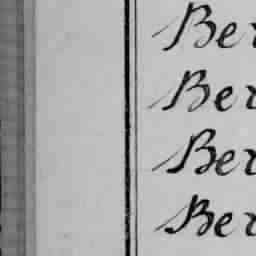 Ber
Ber
Ber
Ber